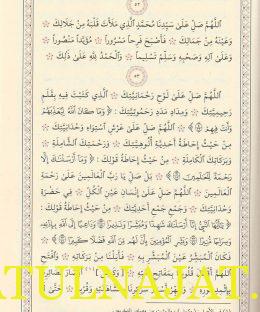 ٥٢
اللَّهُمَّ صَلِّ عَلَى سَيِّدِنَا مُحَمَّدٍ الَّذِي مَلَأْتَ قَلْبَهُ مِنْ جَلَالِكَ
وَعَيْنَهُ مِنْ جَمَالِكَ فَأَصْبَحَ فَرِحاً مَسْرُوراً مُؤَيَّداً مَنْصُوراً
وَعَلَى آلِهِ وَصَحْبِهِ وَسَلِّمْ تَسْلِيماً وَالْحَمْدُ لِلَّهِ عَلَى ذَلِكَ
٥٣
اللَّهُمَّ صَلِّ عَلَى لَوْحِ رَحْمَانِيَّتِكَ الَّذِي كَتَبْتَ فِيهِ بِقَلَمِ
رَحِيمِيَّتِكَ وَمِدَادِ مَدَدِ رَحْمُوتِيَّتِكَ وَمَا كَانَ اللَّهُ لِيُعَذِّبَهُمْ
وَأَنْتَ فِيهِمْ اللَّهُمَّ صَلِّ عَلَى عَرْشِ اسْتِوَاءِ وَحْدَانِيَّتِكَ
مِنْ حَيْثُ إِحَاطَةُ أَحَدِيَّةِ أُلُوهِيَّتِكَ وَرَحْمَتِكَ الشَّامِلَةِ
وَبَرَكَاتِكَ الْكَامِلَةِ مِنْ حَيْثُ إِحَاطَةُ قَوْلِكَ وَمَا أَرْسَلْنَاكَ إِلَّا
رَحْمَةً لِلْعَالَمِينَ بَلْ صَلِّ يَا رَبَّ الْعَالَمِينَ عَلَى رَحْمَةِ
الْعَالَمِينَ اللَّهُمَّ صَلِّ عَلَى إِنْسَانِ عَيْنِ الْكُلِّ فِي حَضْرَةِ
وَحْدَانِيَّتِكَ وَجَمْعِ جَمْعِ أَحَدِيَّتِكَ مِنْ حَيْثُ إِحَاطَةُ قَوْلِكَ
يَا أَيُّهَا النَّبِيُّ إِنَّا أَرْسَلْنَاكَ شَاهِداً وَمُبَشِّراً وَنَذِيراً وَدَاعِياً إِلَى اللَّهِ بِإِذْنِهِ
وَسِرَاجاً مُنِيراً وَبَشِّرِ الْمُؤْمِنِينَ بِأَنَّ لَهُمْ مِنَ اللَّهِ فَضْلاً كَبِيراً
فَكَانَ الْمُبَشِّرُ عَيْنَ الْمُبَشَّرِ بِهِ فَأَنِلْنَا مِنْ بَرَكَاتِهِ وَافْتَحِ
اللَّهُمَّ أَقْفَالَ قُلُوبِنَا بِمَفَاتِيحِ حُبِّهِ